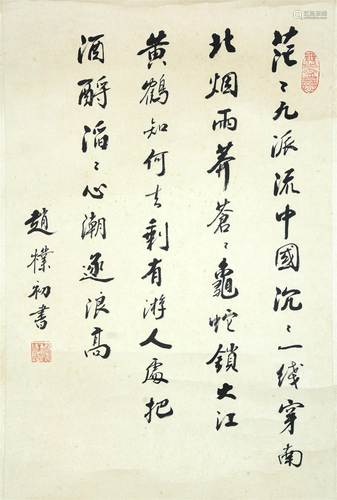 茫〻九派流中國沉〻一綫穿南
北烟雨莽蒼〻龜蛇鎖大江
黃鶴知何去剩有游人處把
酒酹滔〻心潮逐浪高
趙樸初書